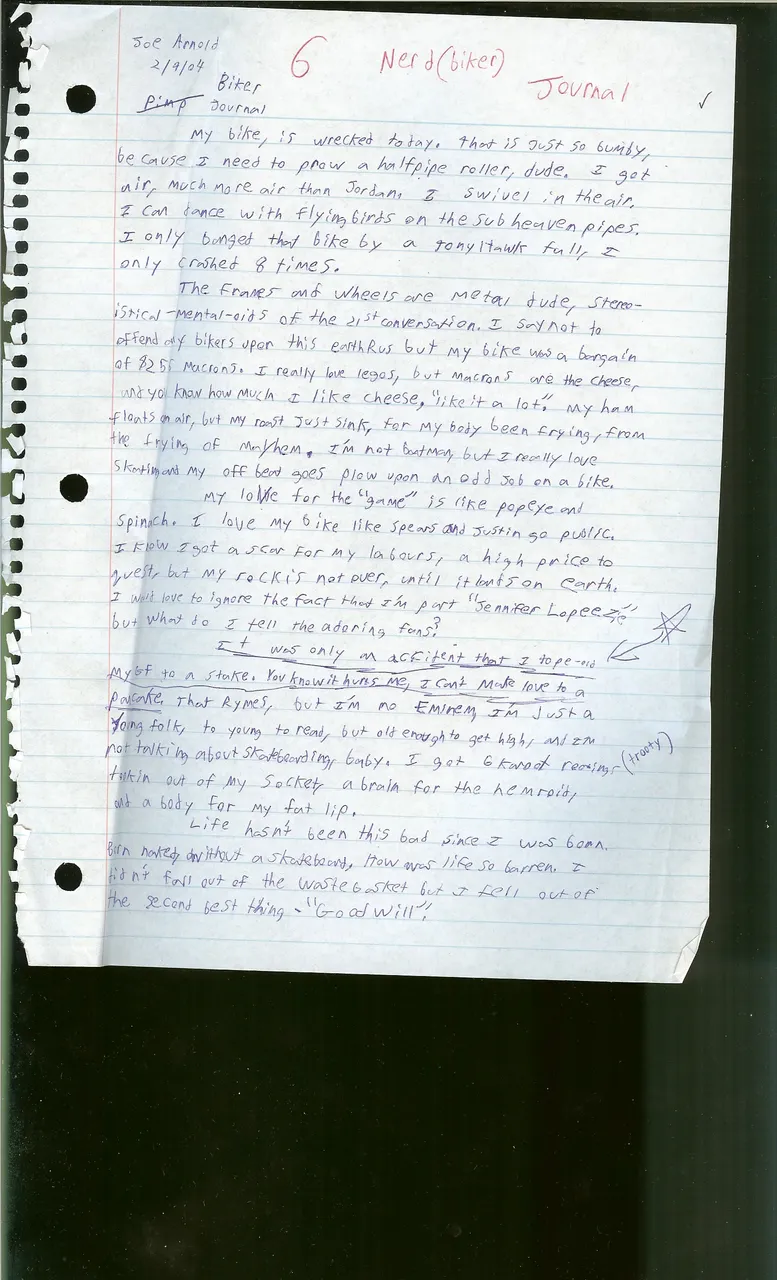 Joe Arnold
2/9/04
6 Nerd (biker)
Journal
Biker
Pimp Journal
My bike, is wrecked today. That is just so bumby,
because I need to prow a halfpipe roller, dude. I got
air, much more air than Jordan. I swivel in the air.
I can dance with flying birds on the sub heaven pipes.
I only banged that bike by a Tony Hawk fall, I
only crashed 8 times.
The Frames and Wheels are metal dude, stereo-
istical-mental-oids of the 21st conversation. I say not to
offend any bikers upon this earth R us but my bike was a bargain
of macrons. I really love legos, but macrons are the cheese,
and you know how much I like cheese, "like it a lot". My ham
floats on air, but my roast just sink, for my body been frying, from
the frying of Mayhem. I'm not Batman, but I really love
skating and my off beat goes plow upon an odd job on a bike.
My love for the "game" is like popeye and
spinach. I love my bike like Spears and Justin go public.
I know I got a scar for my labours, a high price to
quest, but my rock is not over, until it lands on earth.
I would love to ignore the fact that I'm part "Jennifer Lopeezie"
but what do I tell the adoring fans?
It was only an accitent that I tope-oid
my GF to a stake. You know it hurts me, I can't make love to a
pancake. That Rymes, but I'm no Eminem, I'm just a
young folk, to young to read, but old enough to get high, and I'm
not talking about skateboarding, baby. I got 6 karoot rootings (trooty)
talkin out of my socket, a brain for the hemroid,
and a body for my fat lip.
Life hasn't been this bad since I was born.
Born naked, without a skateboard, How was life so barren. I
didn't fall out of the waste basket but I fell out of
the second best thing - "Good will".